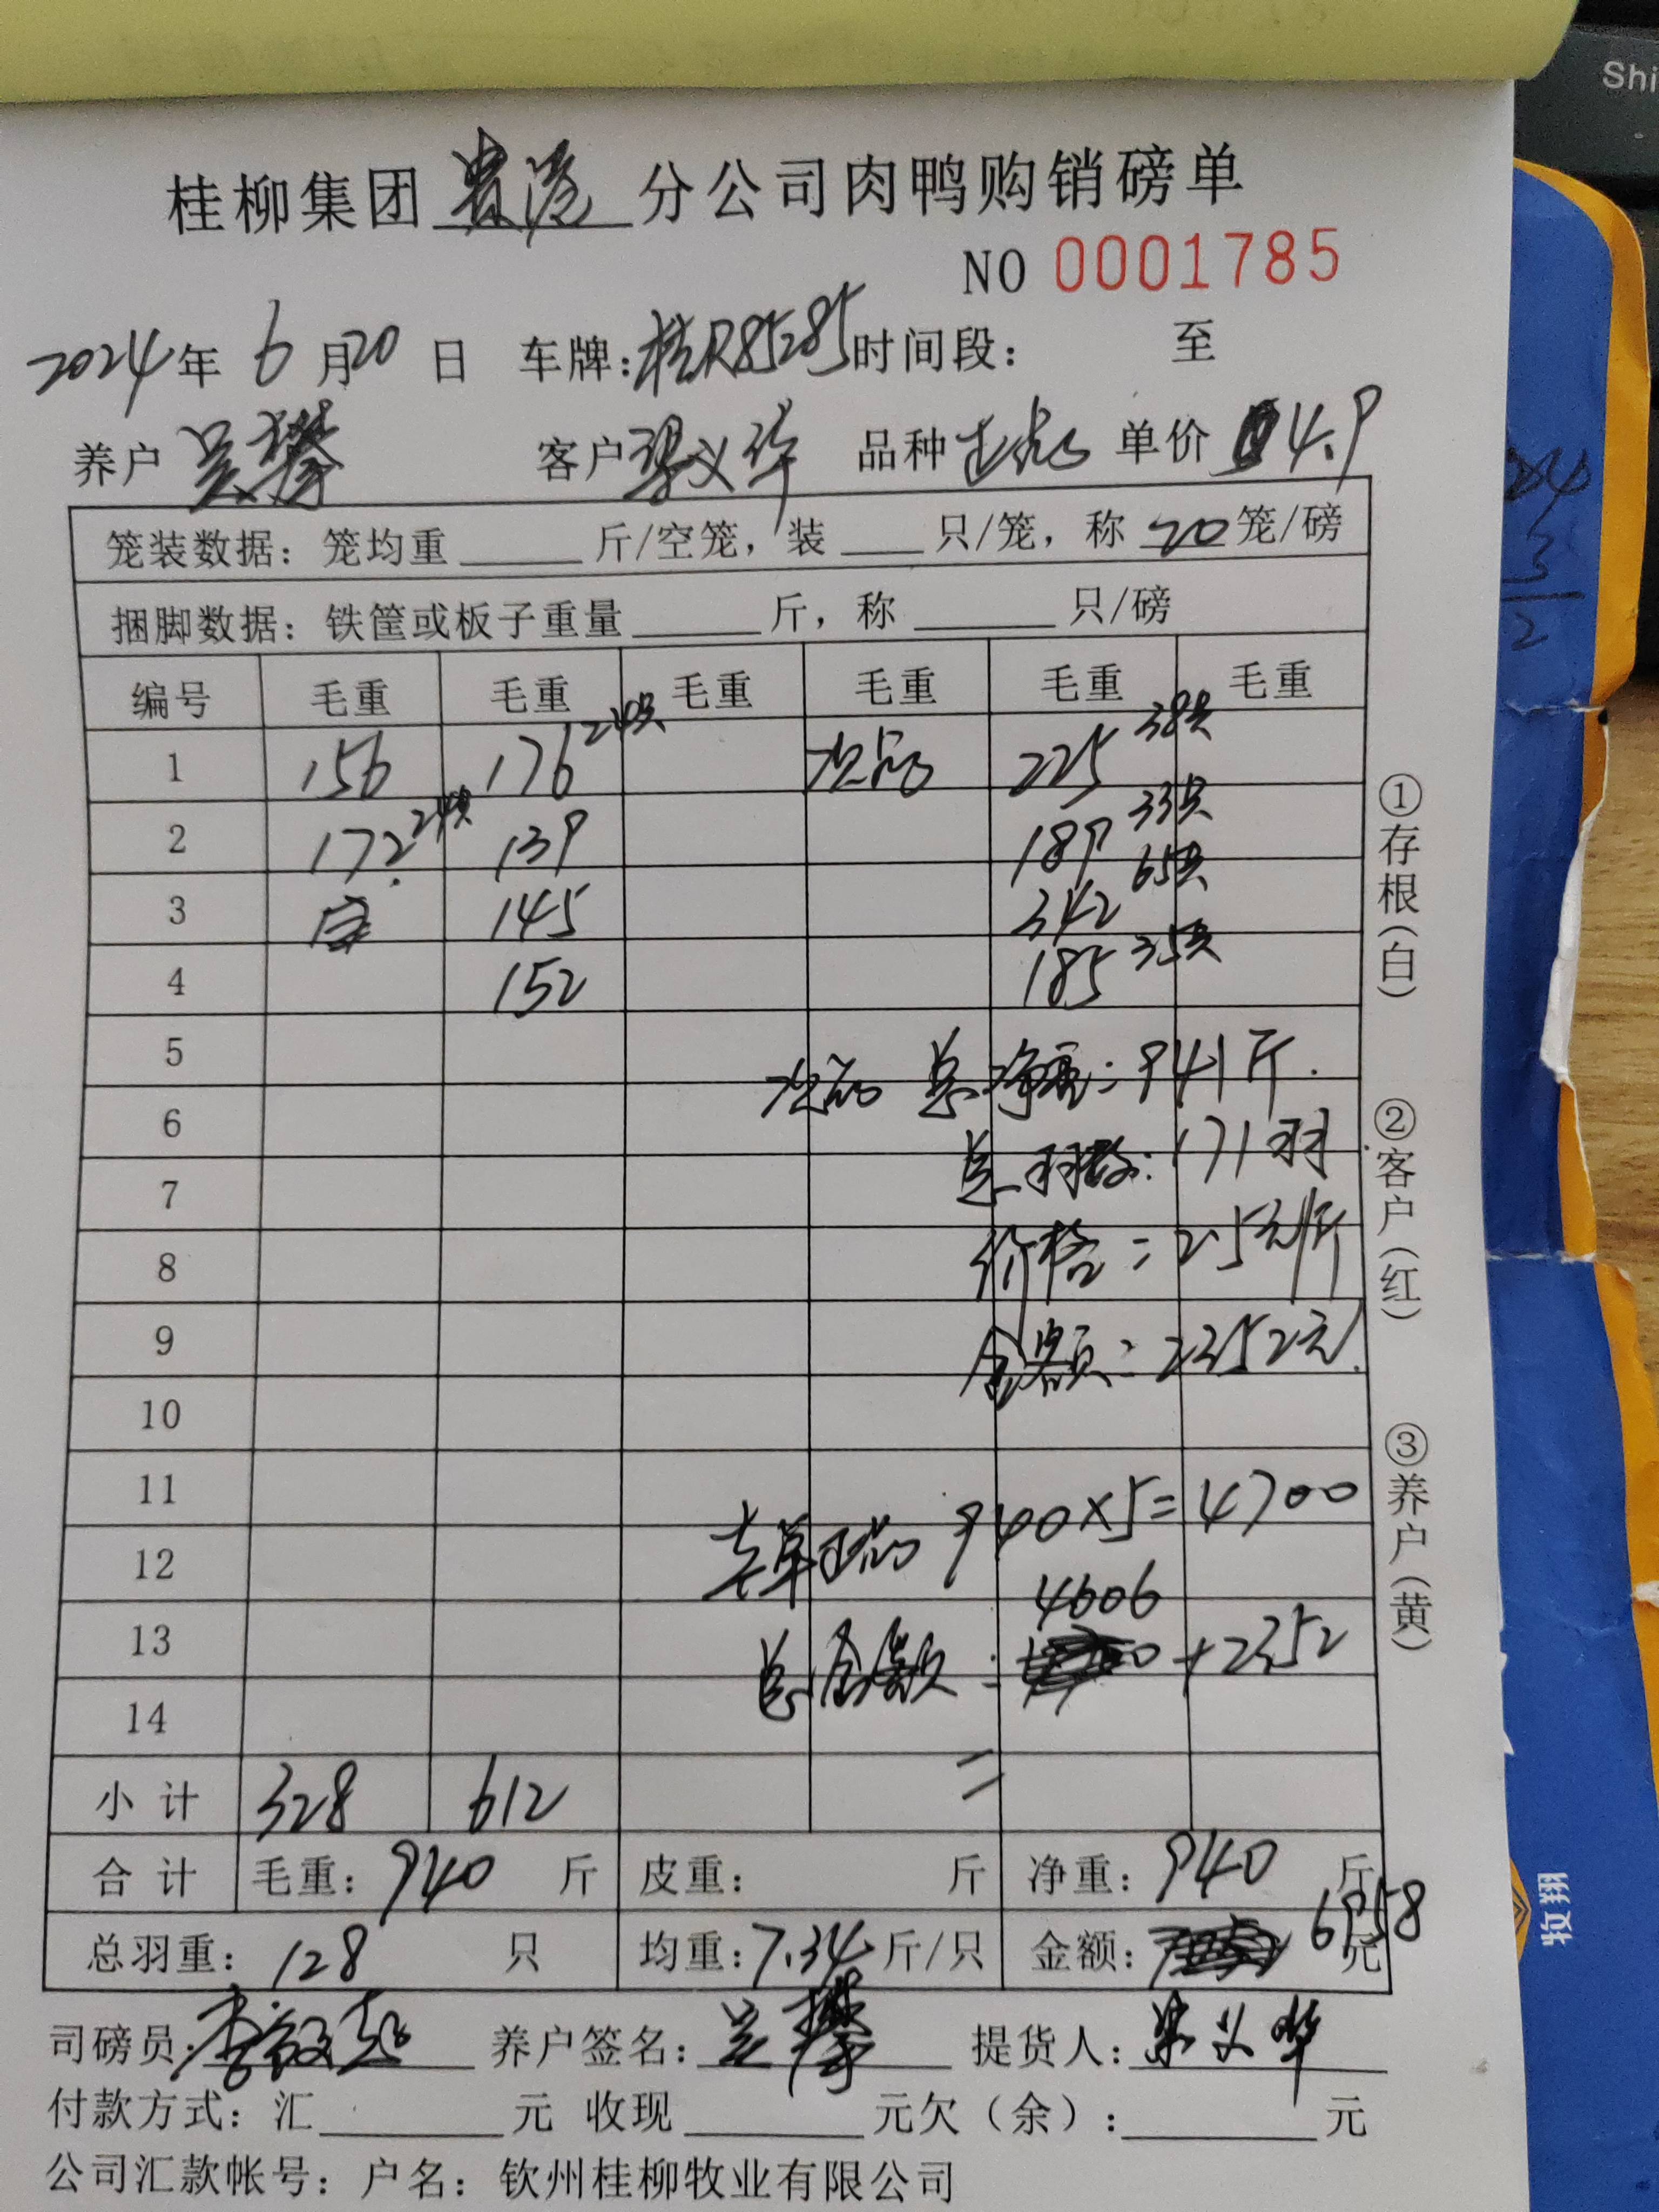 Shi
桂柳集团贵港分公司肉鸭购销磅单
NO 0001785
2024年6月20日 车牌:桂R85285时间段: 至
养户 吴攀 客户 梁义华 品种 单价 4.9
笼装数据: 笼均重 斤/空笼, 装 只/笼, 称 20 笼/磅
捆脚数据: 铁筐或板子重量 斤, 称 只/磅
编号 毛重 毛重 毛重 毛重 毛重 毛重
1 156 176 24只 次品 225 38只
2 172 24只 139 189 33只
3 145 342 65只
4 152 185 35只
5 次品 总净重: 941斤.
6 总羽数: 171羽.
7
8 价格: 2.5元/斤
9 金额: 2352元.
10
11 940×5=4700
12 4606
13 总金额: +2352
14
小计 328 612 =
合计 毛重: 940 斤 皮重: 斤 净重: 940 斤
总羽重: 128 只 均重: 7.34 斤/只 金额: 6958 元
司磅员: 养户签名: 吴攀 提货人: 梁义华
付款方式: 汇 元 收现 元欠(余): 元
公司汇款帐号: 户名: 钦州桂柳牧业有限公司
①存根(白)
②客户(红)
③养户(黄)
3
2
牧翔